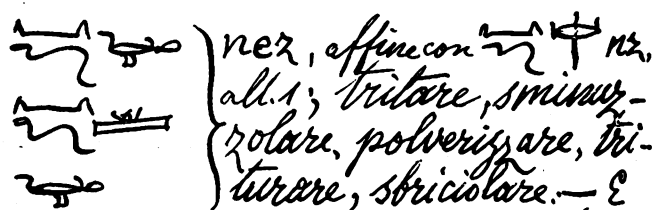 nez, affine con nz,
all. 1; tritare, sminuz-
zolare, polverizzare, tri-
turare, sbriciolare. — E